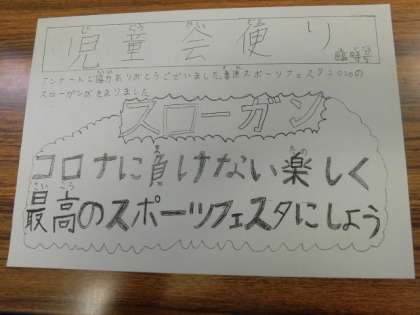 児童会便り
臨時号
アンケートご協力ありがとうございました。スポーツフェスタ2020の
スローガンがきまりました
スローガン
コロナに負けない楽しく
最高のスポーツフェスタにしよう